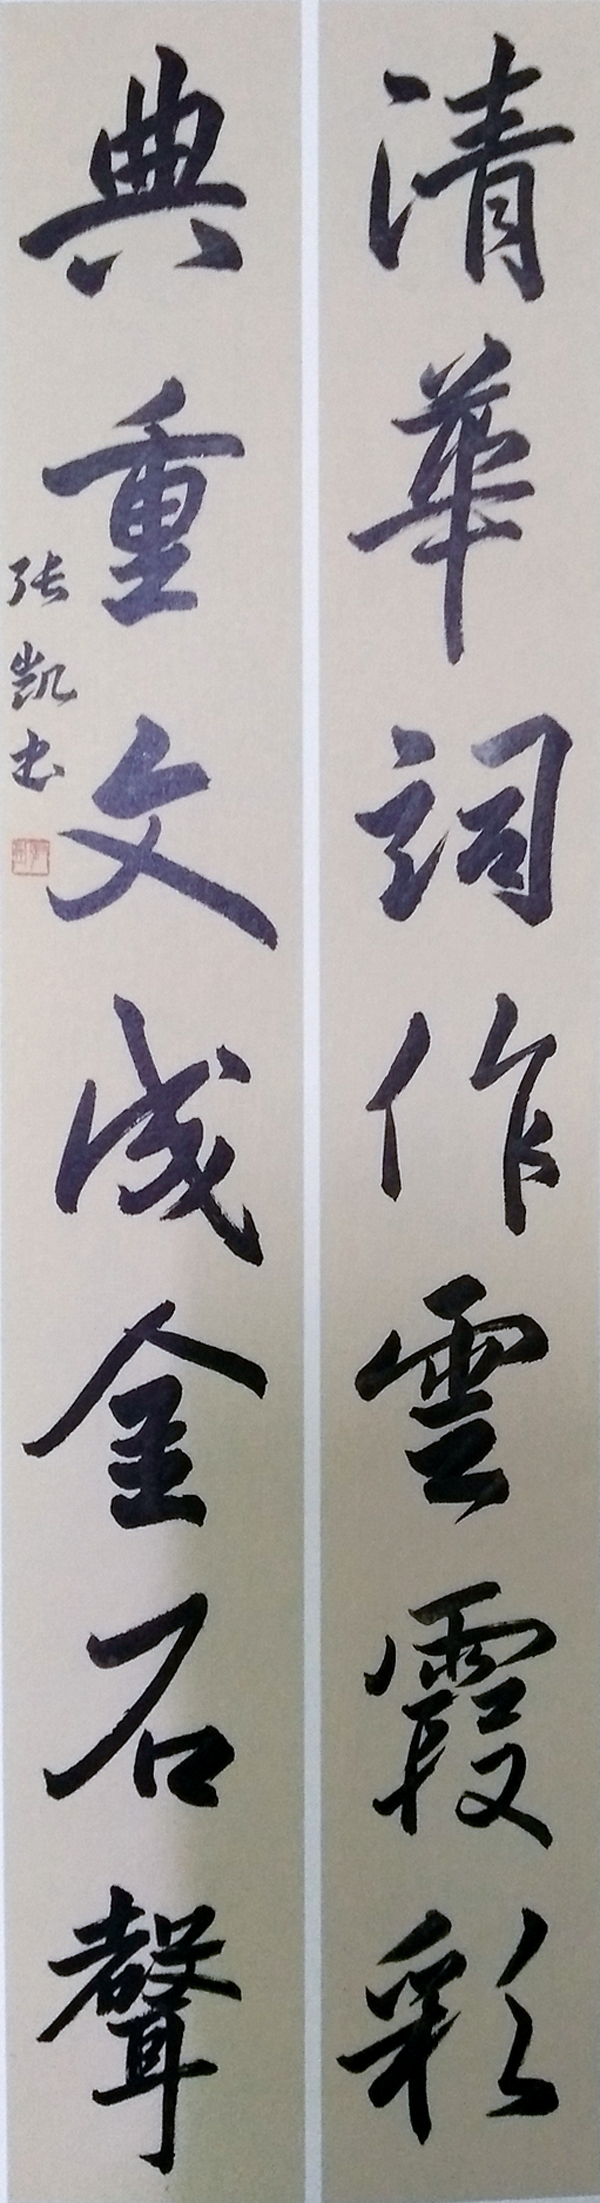 清華詞作雲霞彩
典重文成金石聲
张凯书